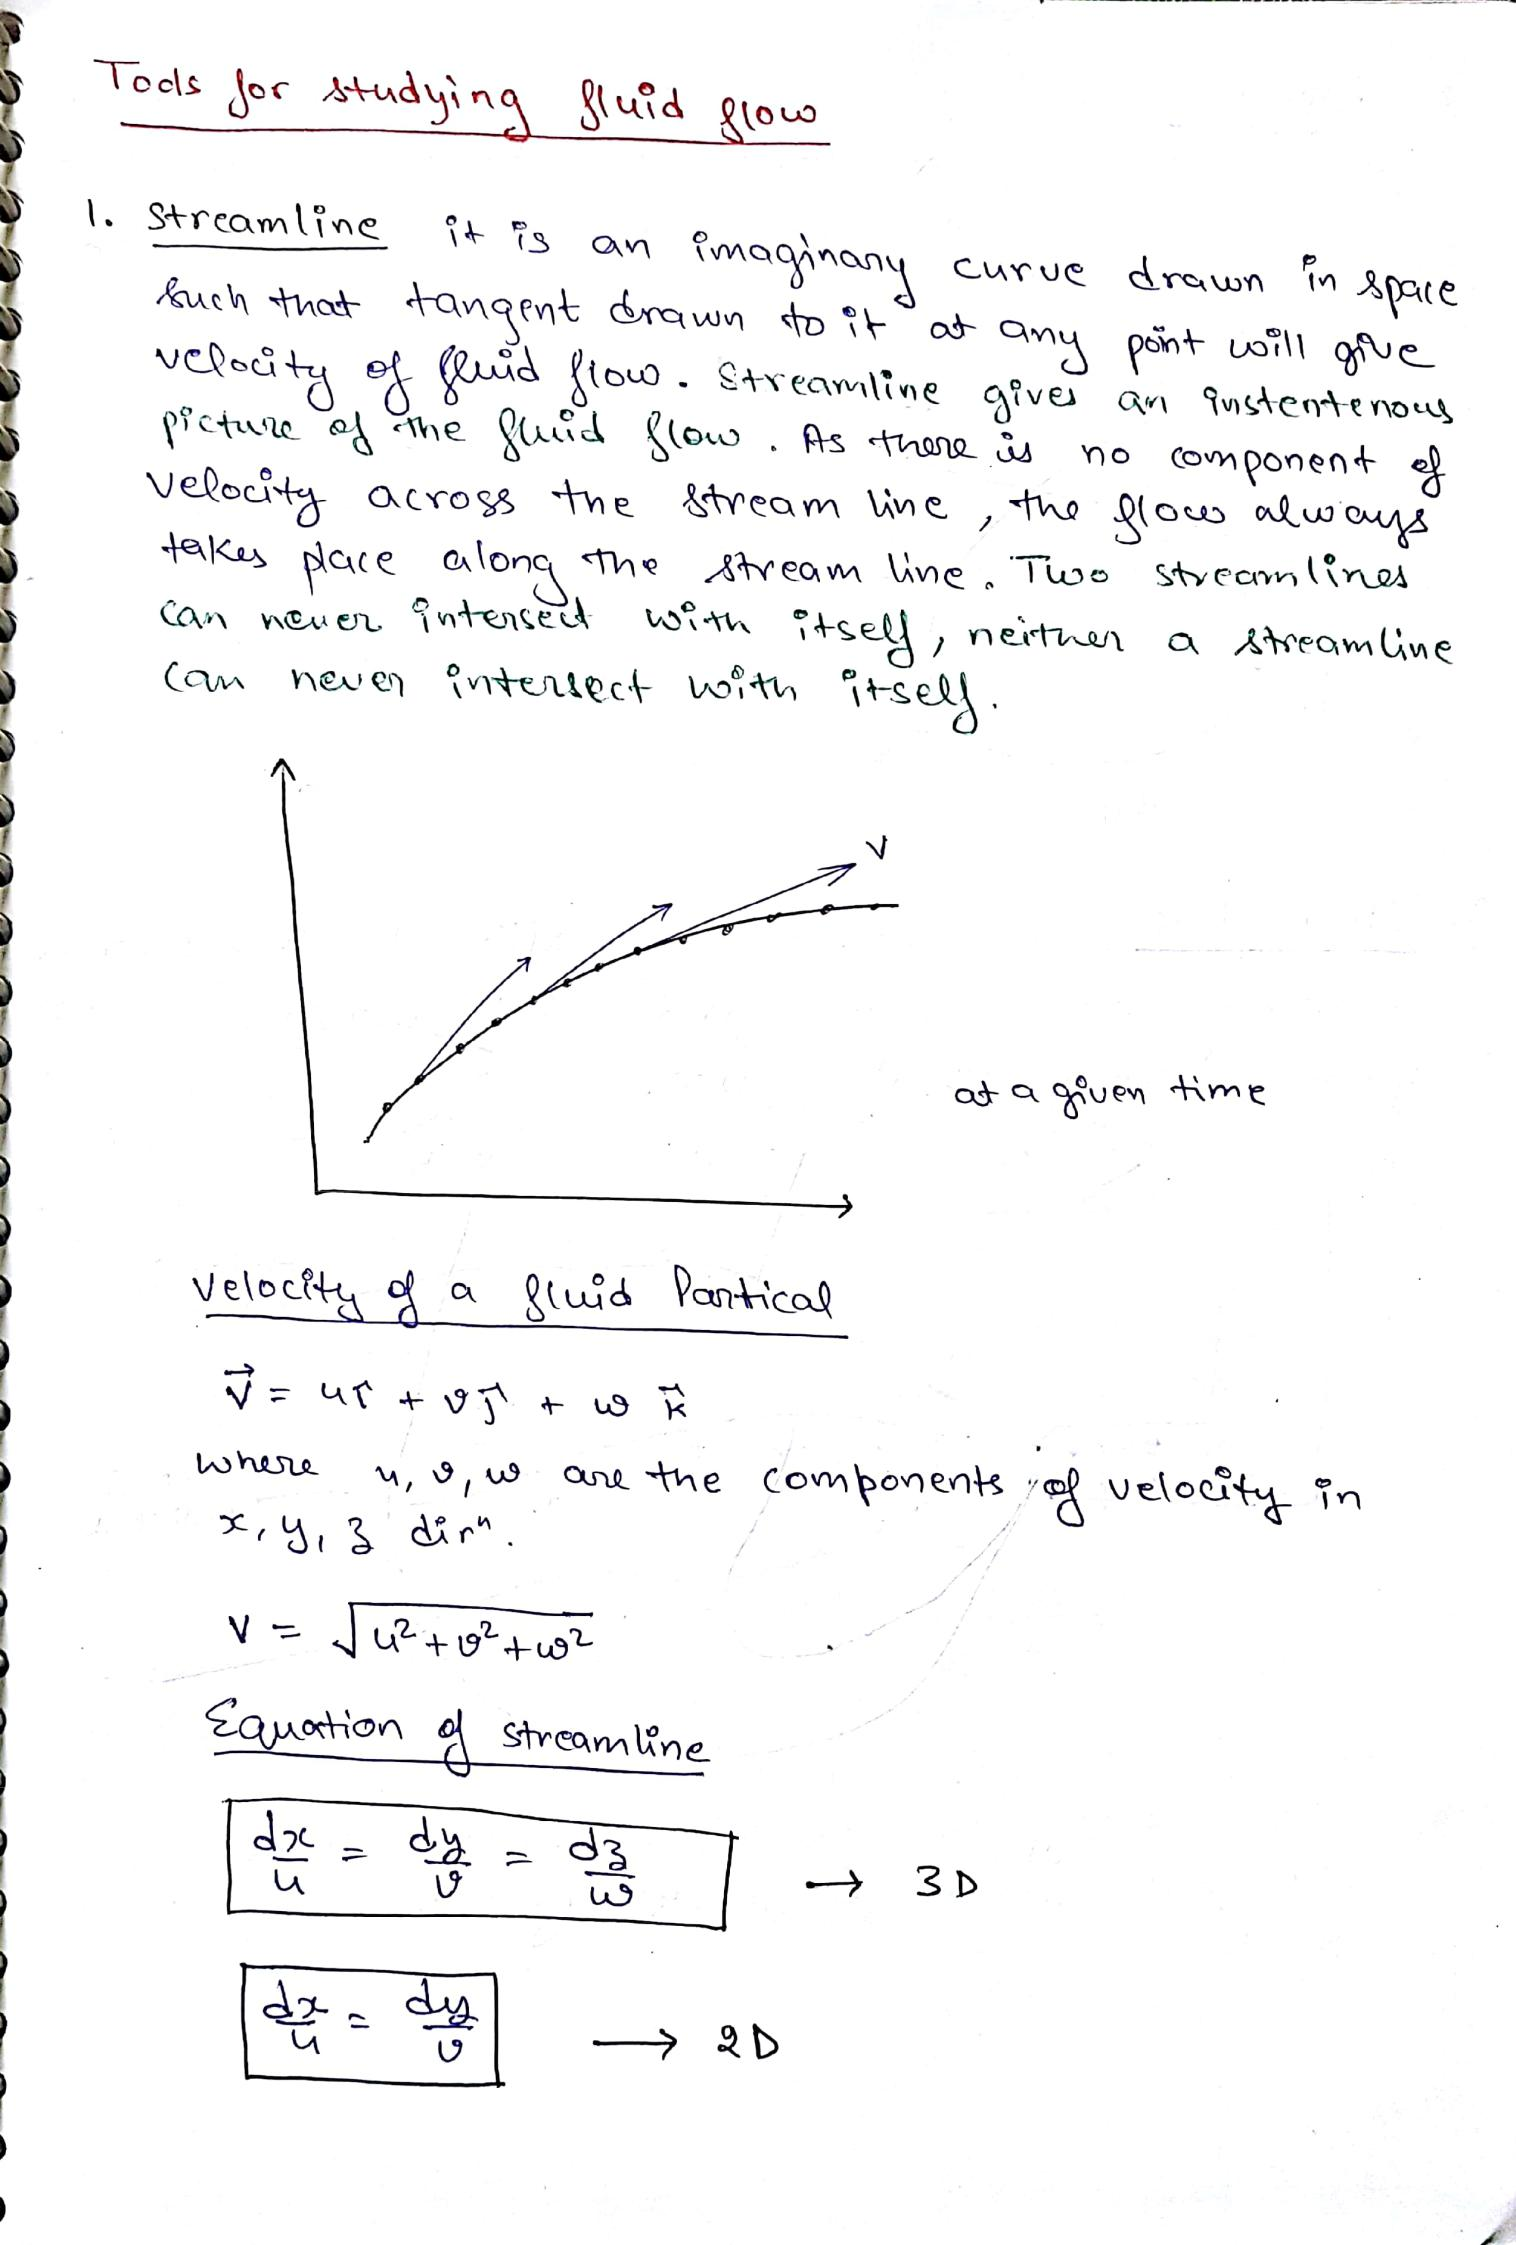 Tools for studying fluid flow
1. Streamline it is an imaginary curve drawn in space
such that tangent drawn to it at any point will give
velocity of fluid flow. Streamline gives an instentenous
picture of the fluid flow. As there is no component of
velocity across the stream line, the flow always
takes place along the stream line. Two streamlines
can never intersect with itself, neither a streamline
can never intersect with itself.
V
at a given time
Velocity of a fluid Partical
V⃗ = uî + vĵ + w k⃗
where u, v, w are the components of velocity in
x, y, z dirⁿ.
V = √u²+v²+w²
Equation of streamline
dx/u = dy/v = dz/w → 3D
dx/u = dy/v → 2D